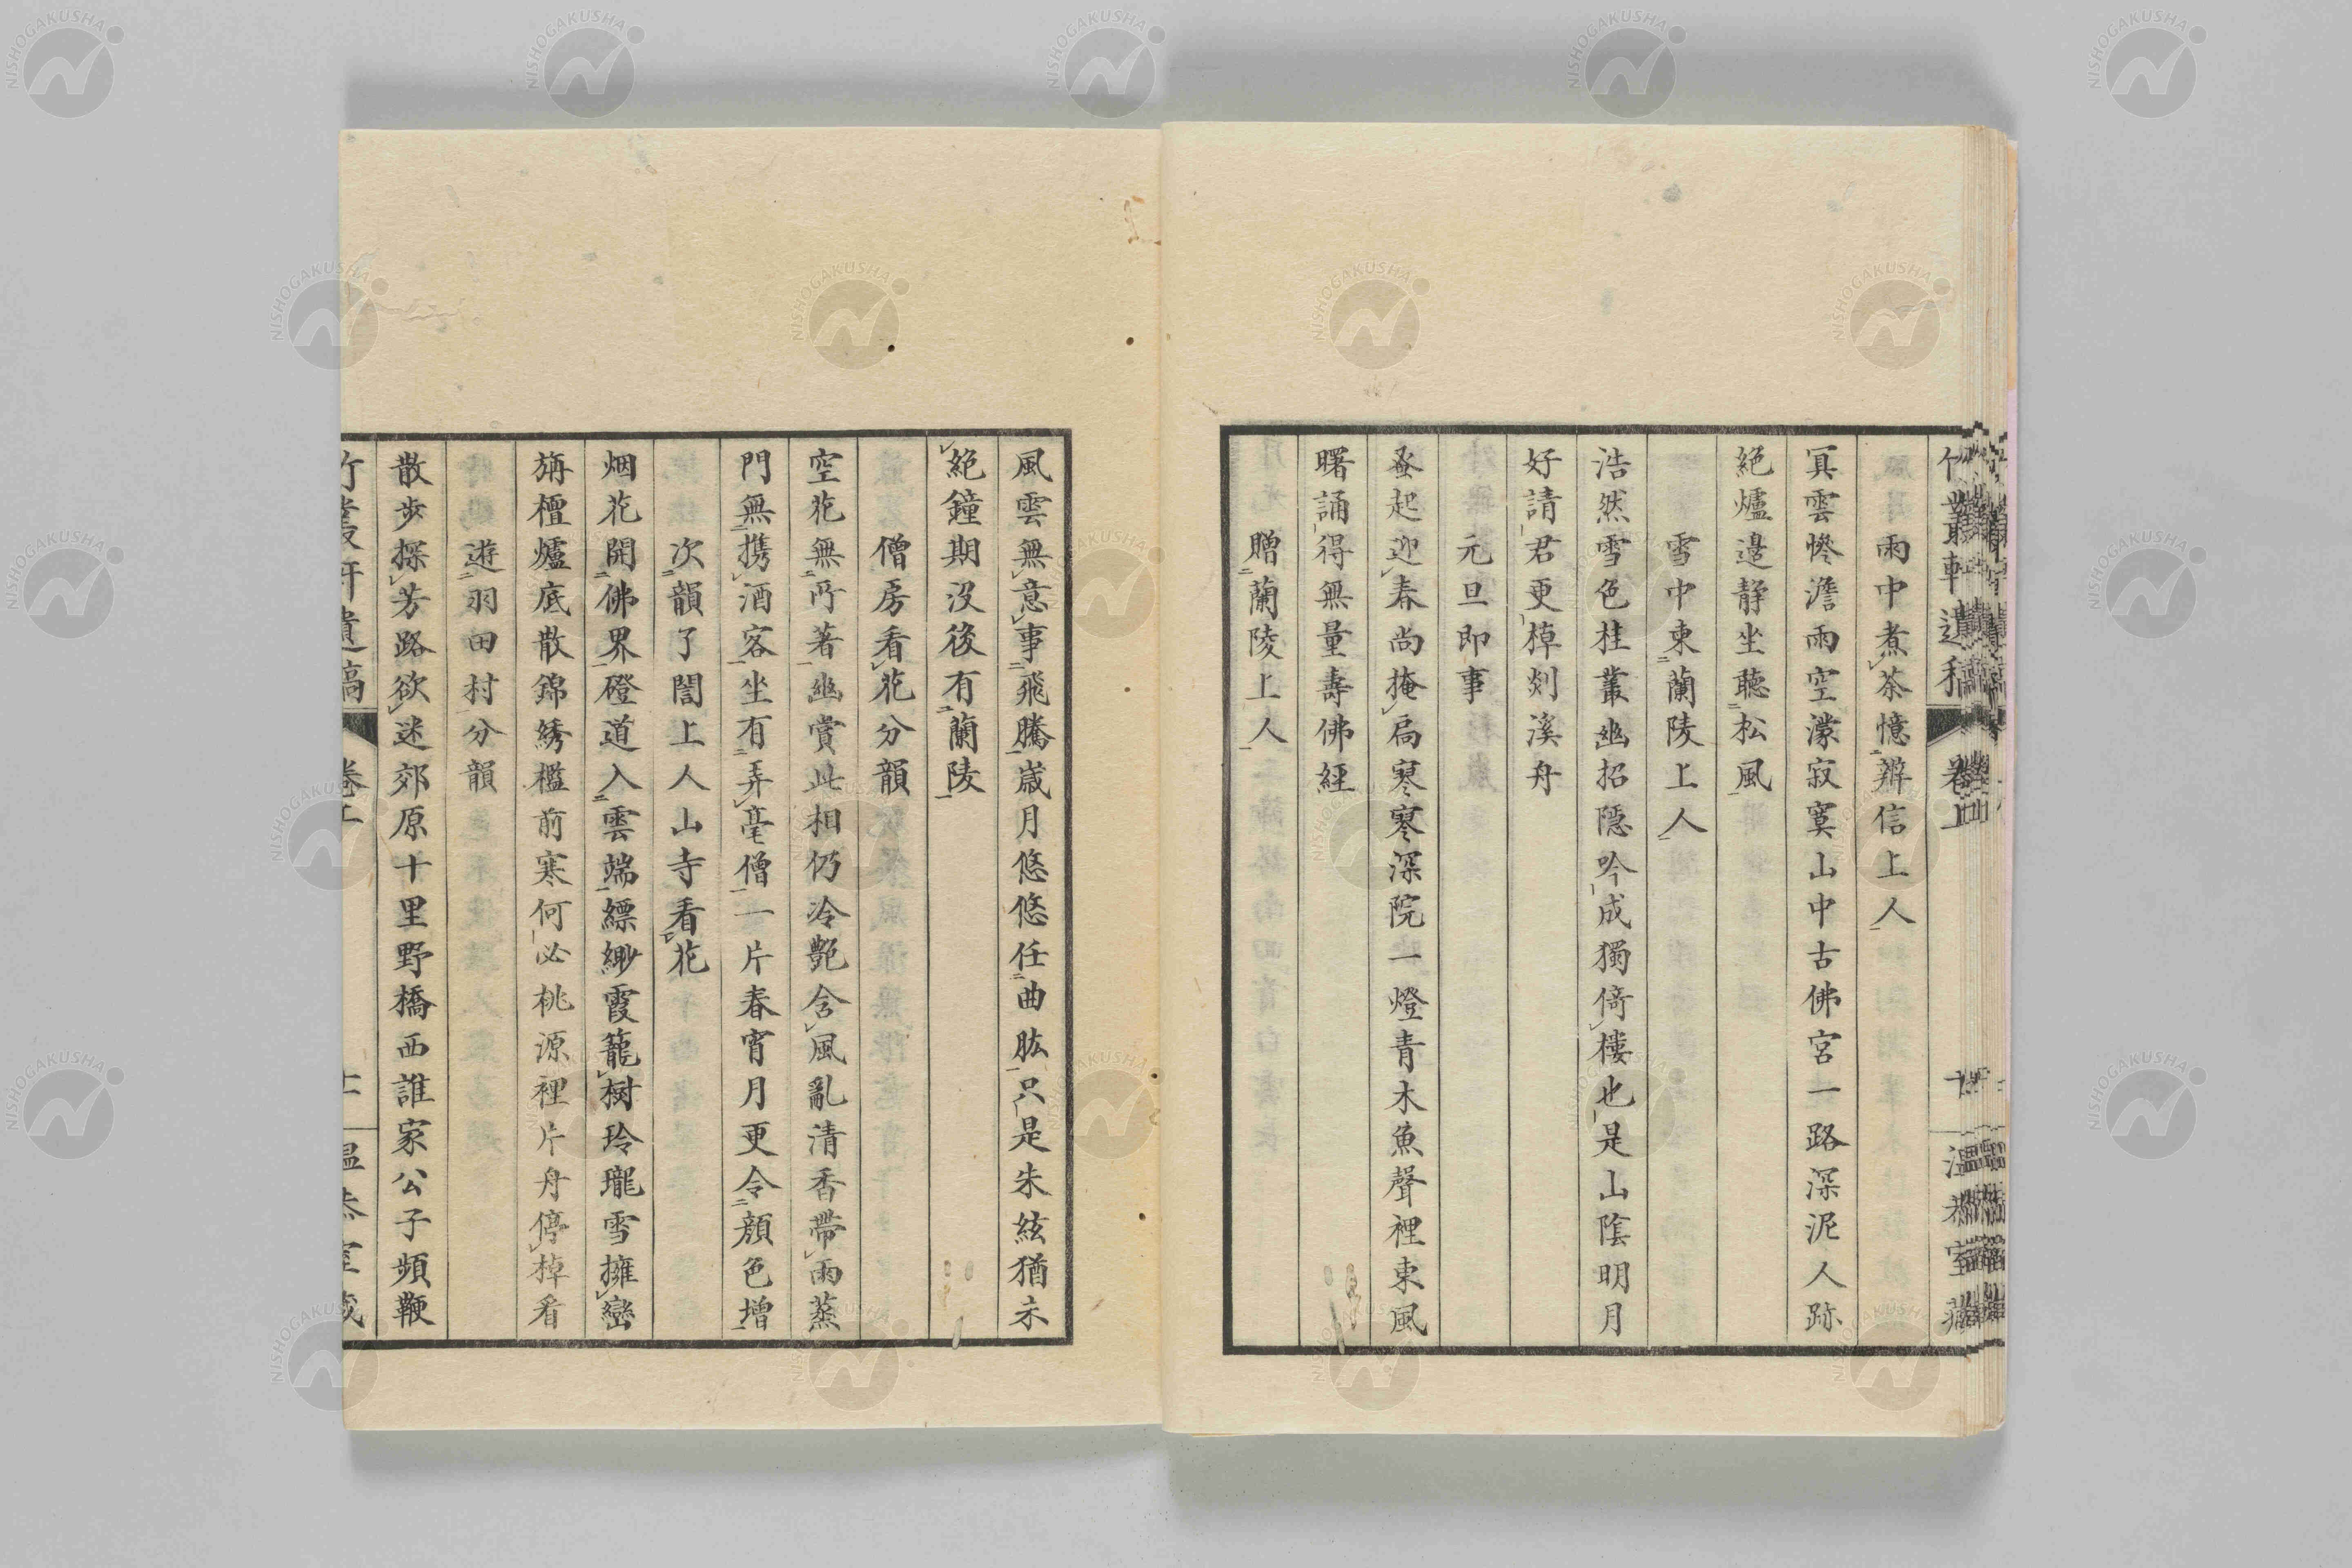 竹叢軒遺稿 卷上 十 溫恭室藏
雨中煮茶憶辨信上人
冥雲慘澹雨空濛寂寞山中古佛宮一路深泥人跡
絕爐邊静坐聽松風
雪中柬蘭陵上人
浩然雪色桂叢幽招隱吟成獨倚樓也是山陰明月
好請君更棹剡溪舟
元旦即事
蚤起迎春尚掩扃寥寥深院一燈青木魚聲裡東風
曙誦得無量壽佛經
贈蘭陵上人
風雲無意事飛騰歲月悠悠任曲肱只是朱絃猶未
絕鐘期沒後有蘭陵
僧房看花分韻
空花無所著幽賞此相仍冷艷含風亂清香帶雨蒸
門無携酒客坐有弄毫僧一片春宵月更令顏色增
次韻了誾上人山寺看花
烟花開佛界磴道入雲端縹緲霞籠樹玲瓏雪擁巒
旃檀爐底散錦綉檻前寒何必桃源裡片舟停棹看
遊羽田村分韻
散步探芳路欲迷郊原十里野橋西誰家公子頻鞭
竹叢軒遺稿 卷上 十一 溫恭室藏
NISHOGAKUSHA